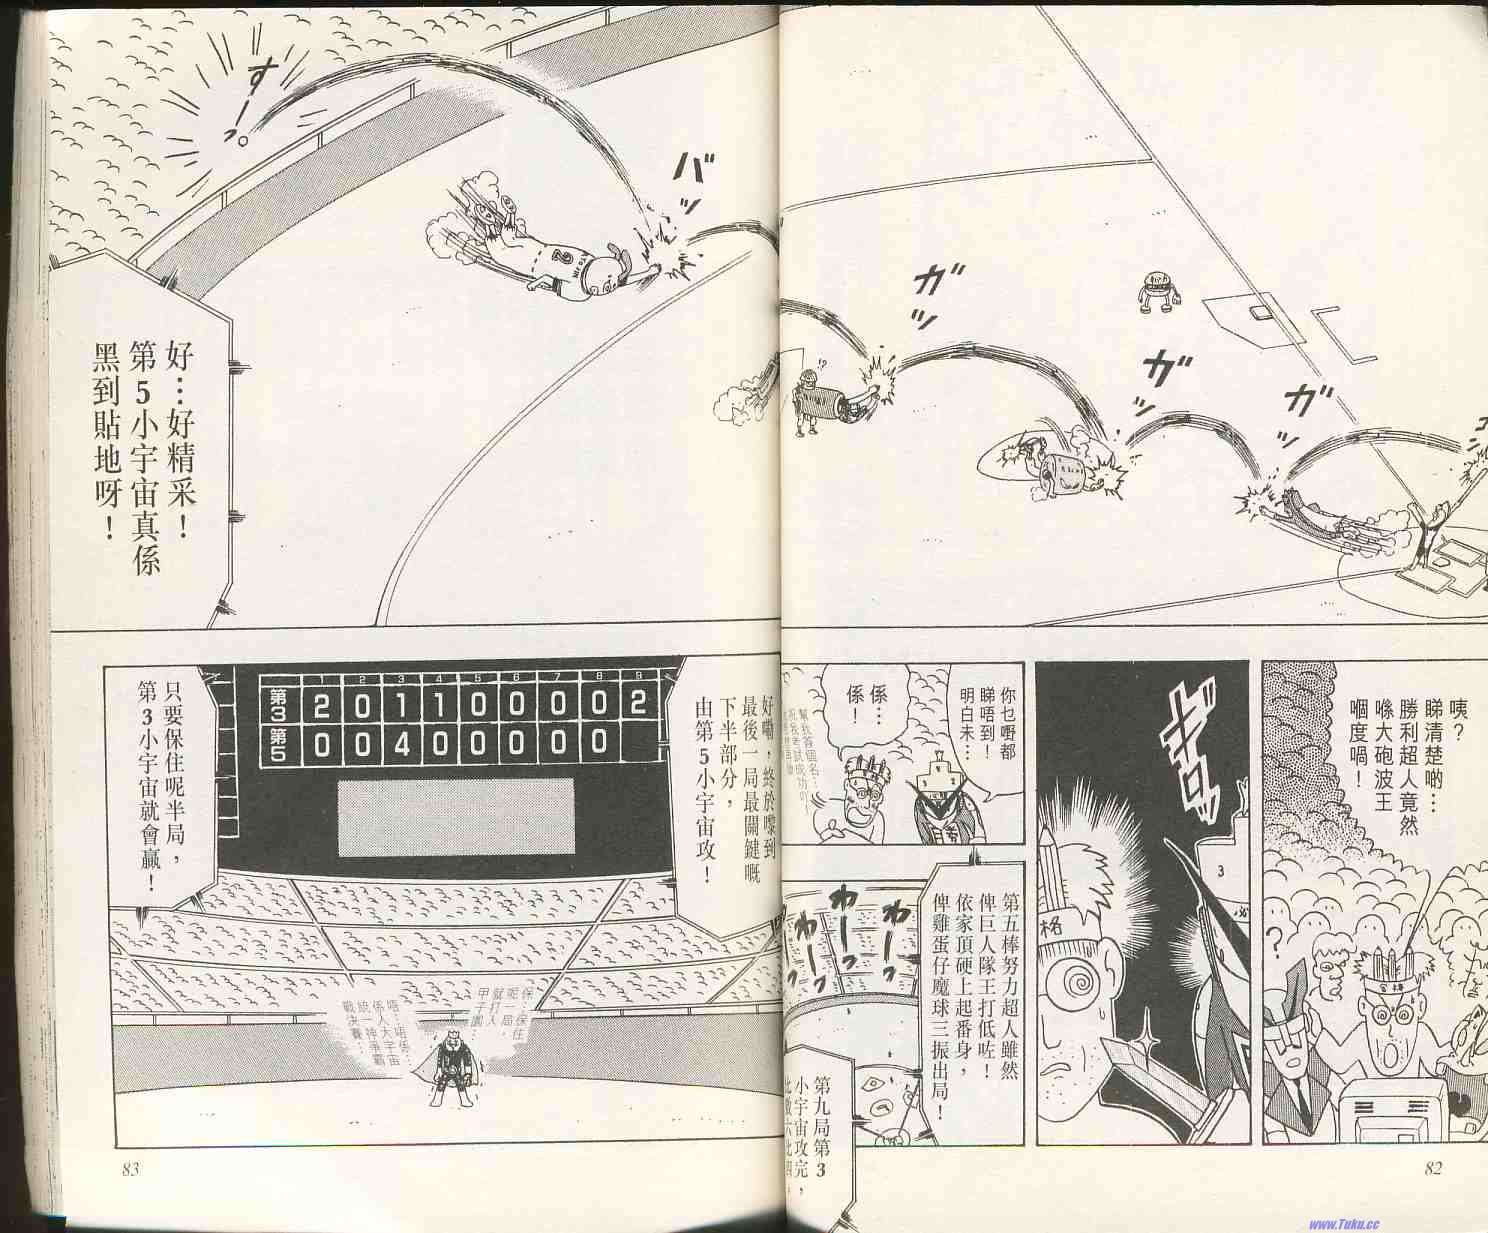 コ
ン
ガ
ッ
ガ
ッ
ガ
ッ
バ
ッ
すーっ
咦？
睇清楚啲…
勝利超人竟然
喺大砲波王
嗰度喎！
?
合格
ギロッ
格
3
你乜嘢都
睇唔到！
明白未…
係…
係！
第五棒努力超人雖然
俾巨人隊王打低咗！
依家頂硬上起番身，
俾雞蛋仔魔球三振出局！
わーっ
わーっ
わーっ
第九局第3
小宇宙攻完，
82
好…好精采！
第5小宇宙真係
黑到貼地呀！
2
好嘞，終於嚟到
最後一局最關鍵嘅
下半部分，
由第5小宇宙攻！
1 2 3 4 5 6 7 8 9
第3 2 0 1 1 0 0 0 0 2
第5 0 0 4 0 0 0 0 0
只要保住呢半局，
第3小宇宙就會贏！
保…保住
呢一局，
就打入
甲子園…
唔…唔係…
係人大宇宙
統一神爭霸
戰決賽…
83
www.Tuku.cc